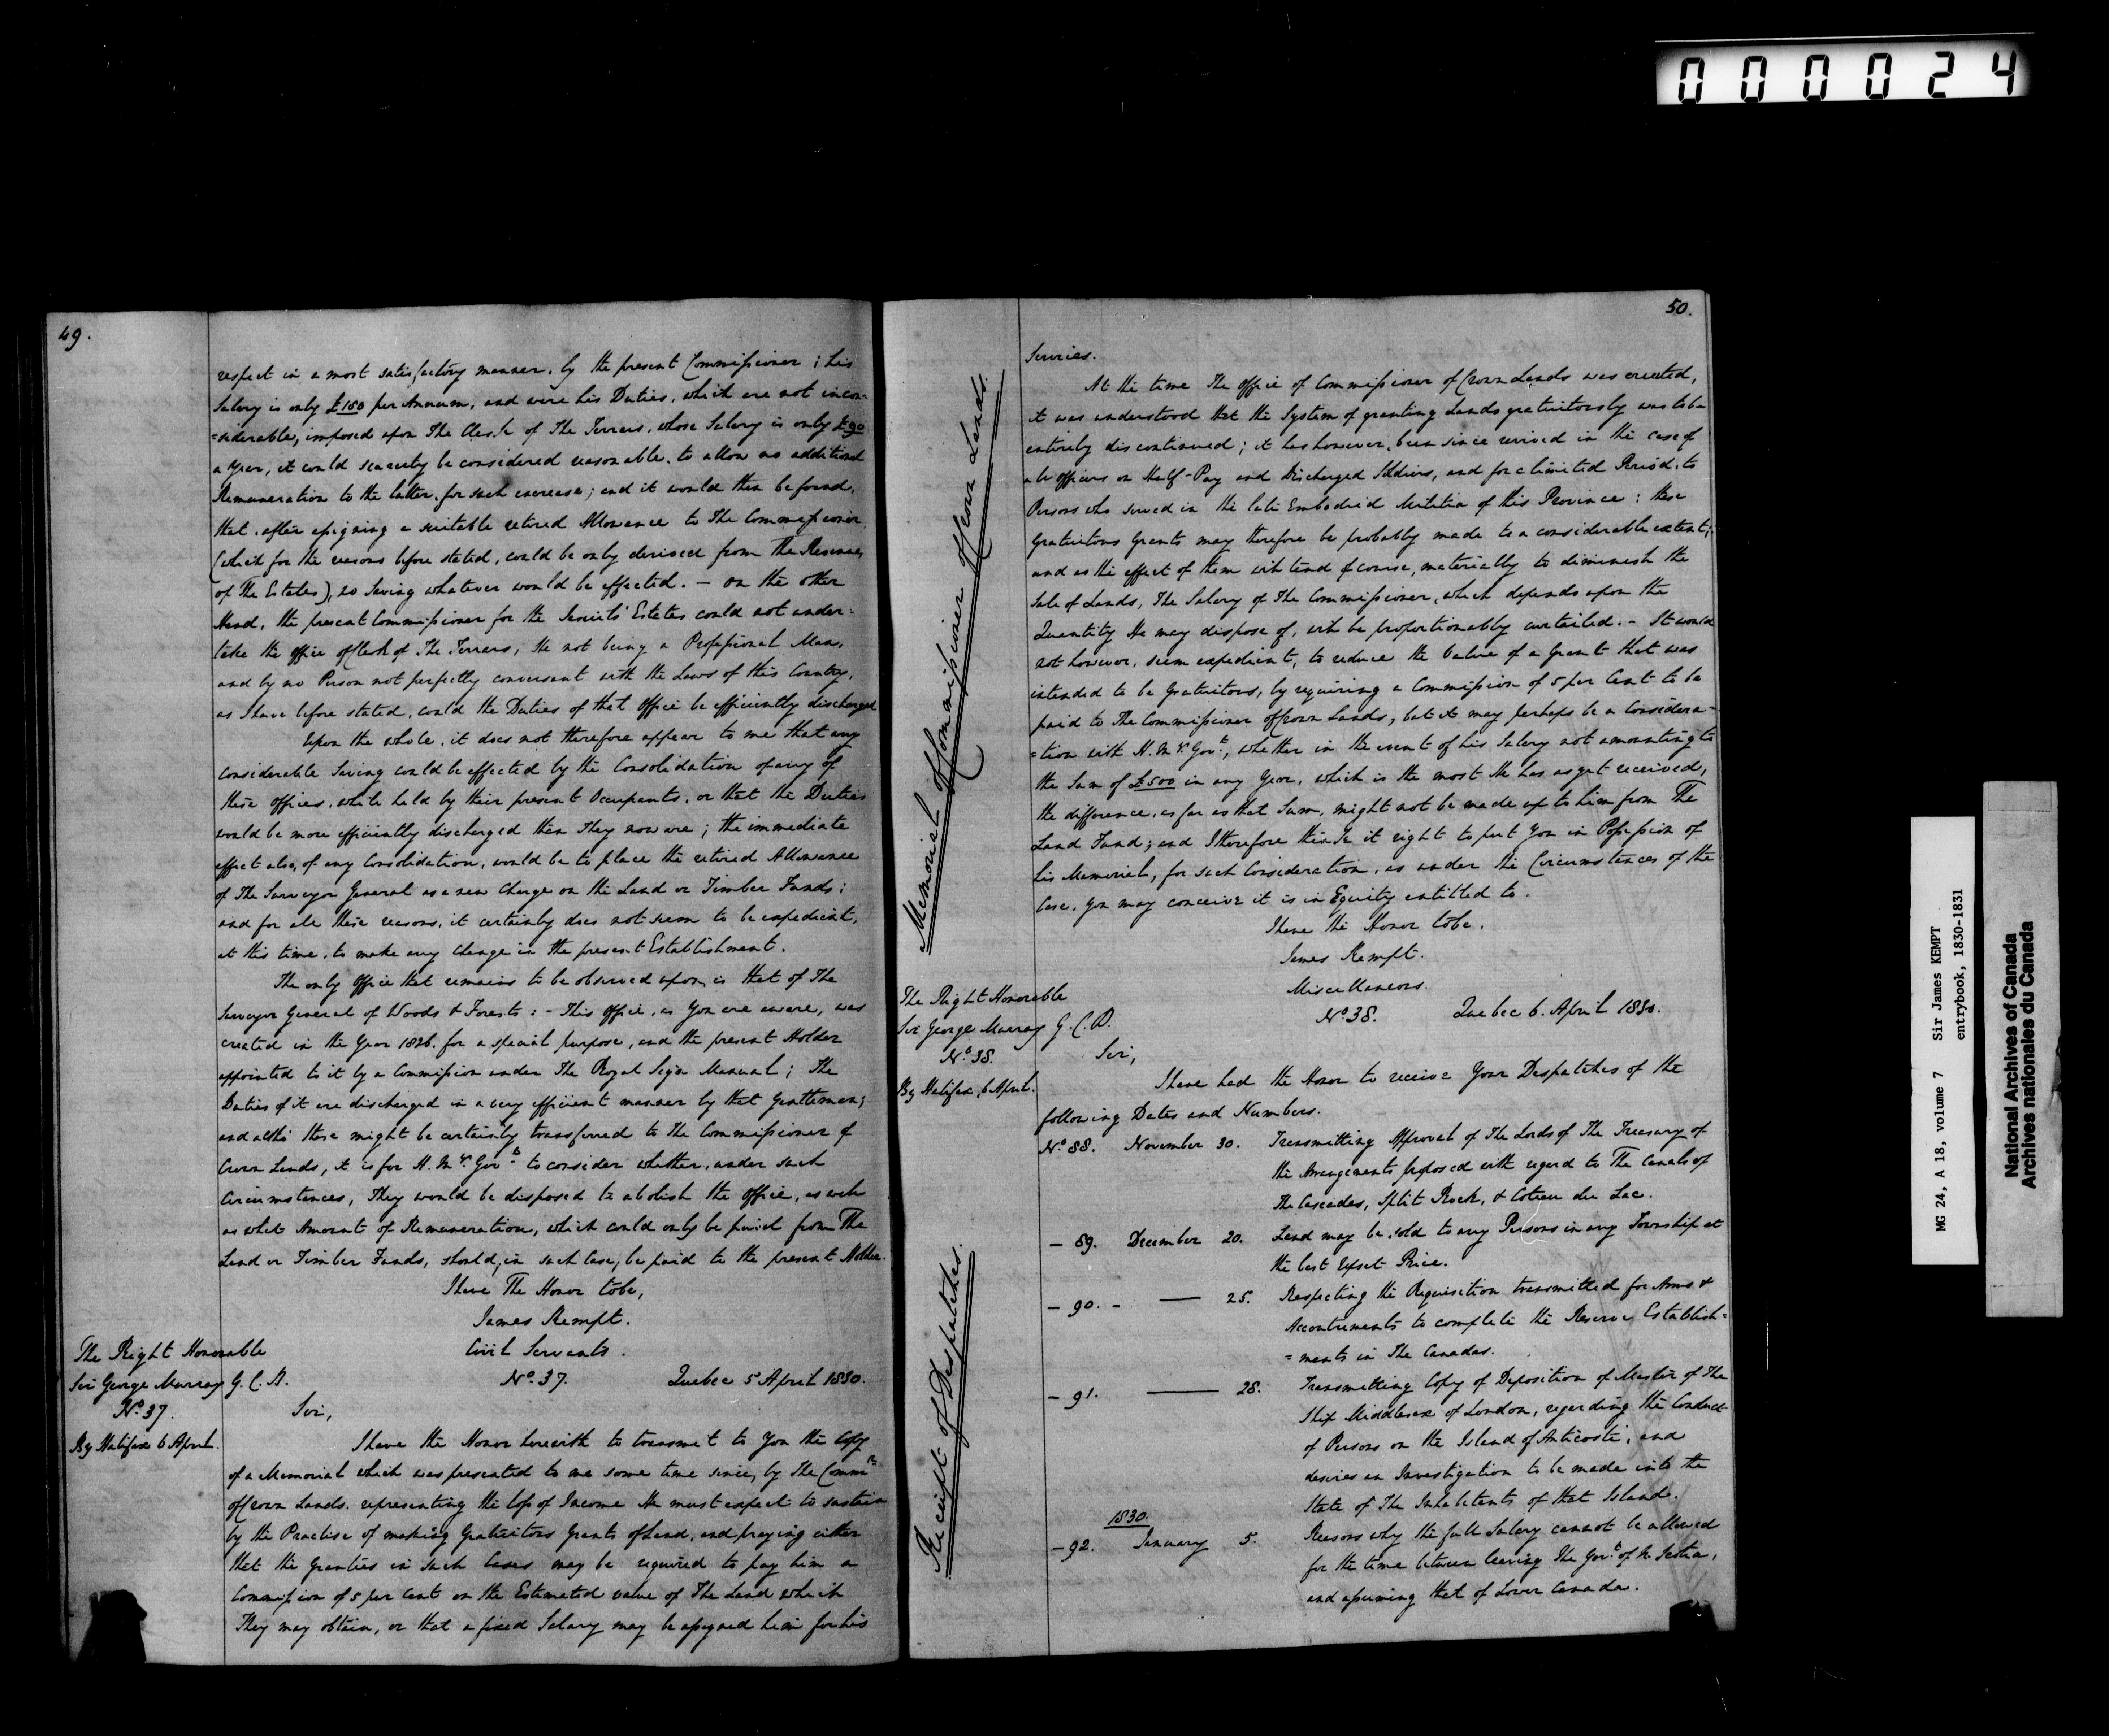 000024
49.
respect in a most satisfactory manner, by the present Commissioner; his
Salary is only £150 per Annum, and were his Duties, which are not incon-
=siderable, imposed upon The Clerk of The Terrars, whose Salary is only £90
a Year, it could scarcely be considered reasonable, to allow no additional
Remuneration to the latter, for such increase; and it would then be found,
that, after assigning a suitable retired Allowance to The Commissioner,
(which for the reasons before stated, could be only derived from The Revenues
of The Estates), no Saving whatever would be effected. — On the other
Hand, the present Commissioner for the Jesuits' Estates could not under-
take the office of Clerk of The Terrars, He not being a Professional Man,
and by no Person not perfectly conversant with the Laws of this Country,
as I have before stated, could the Duties of that Office be efficiently discharged
Upon the whole, it does not therefore appear to me that any
considerable Saving could be effected by the Consolidation of any of
these offices, while held by their present Occupants, or that the Duties
would be more efficiently discharged than They now are; the immediate
effect also, of any Consolidation, would be to place the retired Allowance
of The Surveyor General as a new Charge on the Land or Timber Funds;
and for all these reasons, it certainly does not seem to be expedient,
at this time, to make any change in the present Establishment.
The only office that remains to be observed upon, is that of The
Surveyor General of Woods & Forests: - This office, as You are aware, was
created in the Year 1826. for a special purpose, and the present Holder
appointed to it by a Commission under The Royal Sign Manual; The
Duties of it are discharged in a very efficient manner by that Gentleman;
and altho' these might be certainly transferred to The Commissioner of
Crown Lands, it is for H. My's. Govt. to consider whether, under such
Circumstances, They would be disposed to abolish the Office, as well
as what Amount of Remuneration, which could only be paid from The
Land or Timber Funds, should, in such Case, be paid to the present Holder.
I have The Honor to be,
James Kempt.
The Right Honorable
Sir George Murray G. C. B.
No. 37.
By Halifax 6 April.
Civil Servants.
No. 37. Quebec 5 April 1830.
Sir,
I have the Honor herewith to transmit to You the Copy
of a Memorial which was presented to me some time since, by The Commr.
of Crown Lands, representing the loss of Income He must expect to sustain
by the Practise of making Gratuitous Grants of Land, and praying either
that the Grantees in such Cases may be required to pay him a
Commission of 5 per Cent on the Estimated value of The Land which
They may obtain, or that a fixed Salary may be assigned him for his
50.
Memorial of Commissioner of Crown Lands.
Services.
At the time The Office of Commissioner of Crown Lands was created,
it was understood that the System of granting Lands gratuitously was to be
entirely discontinued; it has however, been since revived in the case of
all officers on Half-Pay and Discharged Soldiers, and for a limited Period, to
Persons who served in the late Embodied Militia of this Province; these
gratuitous Grants may therefore be probably made to a considerable extent;
and as the effect of them will tend of course, materially to diminish the
Sale of Lands, The Salary of The Commissioner, which depends upon the
Quantity He may dispose of, will be proportionably curtailed. - It would
not however, seem expedient, to reduce the Value of a Grant that was
intended to be Gratuitous, by requiring a Commission of 5 per Cent to be
paid to The Commissioner of Crown Lands, but it may perhaps be a Considera-
=tion with H. My's. Govt., whether in the event of his Salary not amounting to
the Sum of £500 in any Year, which is the most He has as yet received,
the difference, as far as that Sum, might not be made up to him from The
Land Fund; and I therefore think it right to put You in Possession of
his Memorial, for such Consideration, as under the Circumstances of the
Case, You may conceive it is in Equity entitled to.
I have the Honor to be.
James Kempt.
The Right Honorable
Sir George Murray G. C. B.
No. 38.
By Halifax, 6 April.
Receipt of Despatches.
Miscellaneous.
No. 38. Quebec 6. April 1830.
Sir,
I have had the Honor to receive Your Despatches of the
following Dates and Numbers.
No. 88. November 30. Transmitting Approval of The Lords of The Treasury of
the Arrangements proposed with regard to The Canals of
The Cascades, Split Rock, & Coteau du Lac.
— 89. December 20. Land may be sold to any Persons in any Township at
the last Upset Price.
— 90. - — 25. Respecting the Requisition transmitted for Arms &
Accoutrements to complete the Reserve Establish=
=ments in The Canadas.
— 91. — 28. Transmitting Copy of Deposition of Master of The
Ship Middlesex of London, regarding the Conduct
of Persons on the Island of Anticosti, and
desires an Investigation to be made into the
State of The Inhabitants of that Island.
1830.
— 92. January 5. Reasons why the full Salary cannot be allowed
for the time between leaving The Govt. of N. Scotia,
and assuming that of Lower Canada.
MG 24, A 18, volume 7 Sir James KEMPT
entrybook, 1830-1831
National Archives of Canada
Archives nationales du Canada